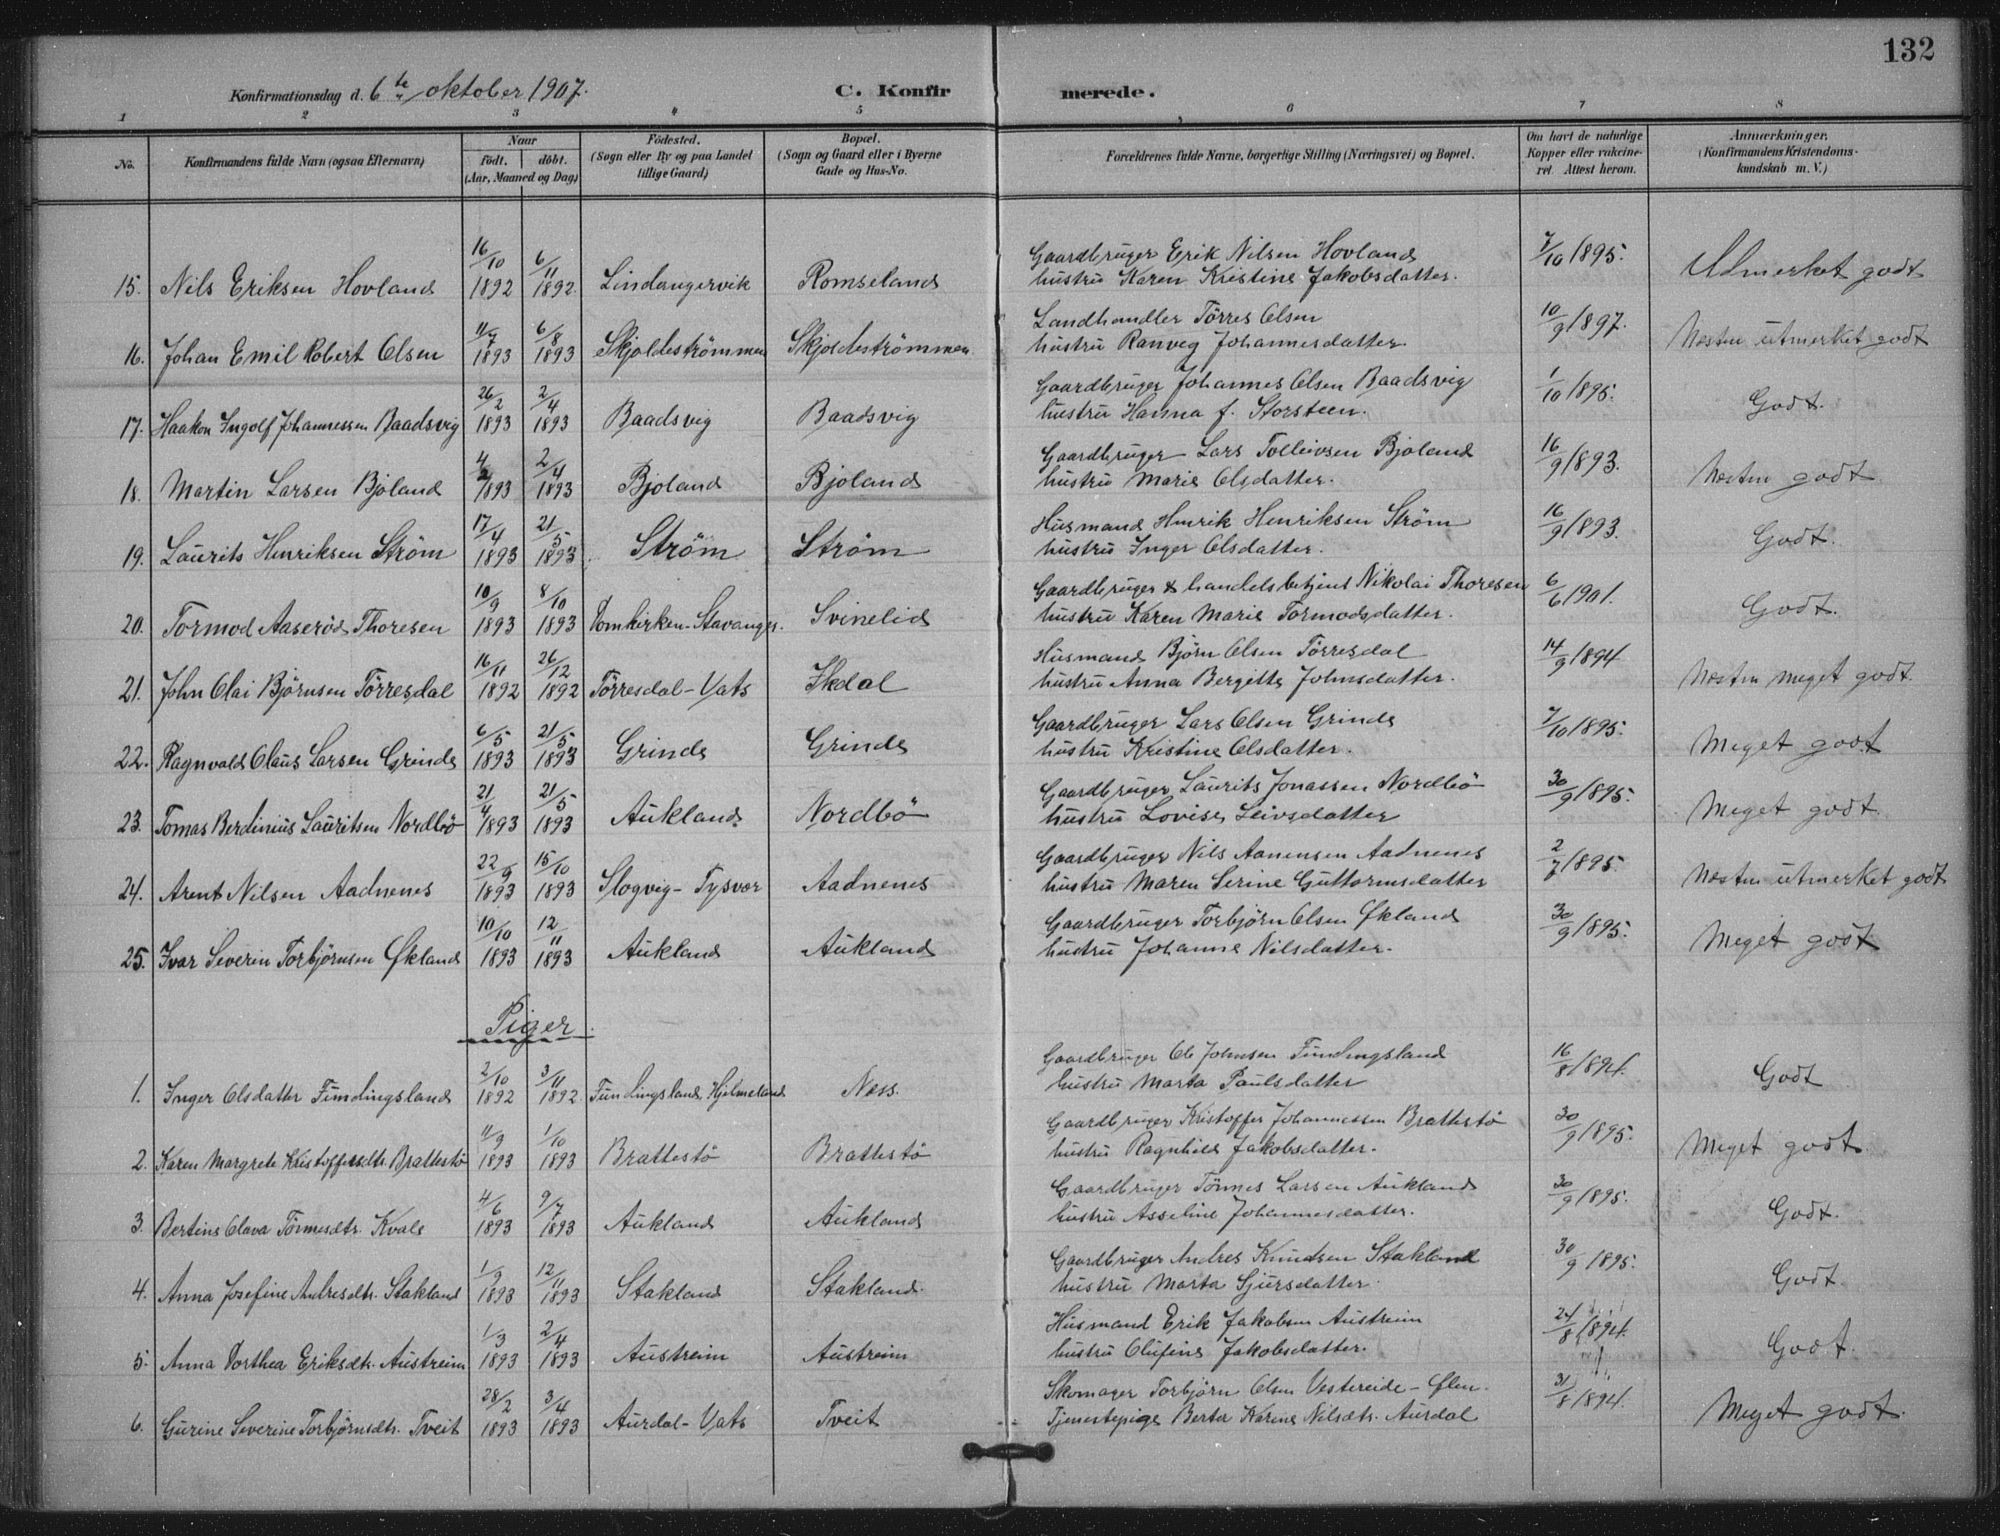 132
Konfirmationsdag d. 6te oktober 1907. C. Konfirmerede.
1 2 3 4 5 6 7 8
No. Konfirmandens fulde Navn (ogsaa Efternavn) Naar født. døbt. (Aar, Maaned og Dag) Fødested. (Sogn eller By og paa Landet tillige Gaard) Bopæl. (Sogn og Gaard eller i Byerne Gade og Hus-No. Forældrenes fulde Navne, borgerlige Stilling (Næringsvei) og Bopæl. Om havt de naturlige Kopper eller vakcineret. Attest herom. Anmærkninger. (Konfirmandens Kristendomskundskab m. V.)
15. Nils Eriksen Hovland 16/10 1892 6/11 1892. Lindangervik Romseland Gaardbruger Erik Nilsen Hovland 7/10 1895. Udmerket godt
hustru Karen Kristine Jakobsdatter.
16. Johan Emil Robert Olsen 11/7 1893 6/8 1893 Skjoldestrømmen Skjoldestrømmen Landhandler Tørres Olsen 10/9 1897. Næsten utmerket godt
hustru Ranveg Johannesdatter
17. Haakon Ingolf Johannessen Baadsvig 26/2 1893 2/4 1893 Baadsvig Baadsvig Gaardbruger Johannes Olsen Baadsvig 1/10 1895. Godt.
hustru Hanna f. Storsteen.
18. Martin Larsen Bjoland 4/2 1893 2/4 1893 Bjoland Bjoland Gaardbruger Lars Tolleivsen Bjoland 16/9 1893. Næsten godt
hustru Marie Olsdatter.
19. Laurits Henriksen Strøm 17/4 1893 21/5 1893 Strøm Strøm Husmand Henrik Henriksen Strøm 16/9 1893. Godt.
hustru Inger Olsdatter.
20. Tormod Aaserød Thoresen 10/9 1893 8/10 1893 Domkirken-Stavanger. Svinelid Gaardbruger & handelsbetjent Nikolai Thoresen 6/6 1901. Godt.
hustru Karen Marie Tormodsdatter.
21. John Olai Bjørnsen Tørresdal 16/11 1892 26/12 1892 Tørresdal-Vats Ilkdal Husmand Bjørn Olsen Tørresdal 14/9 1894 Næsten meget godt.
hustru Anna Bergitte Johnsdatter.
22. Ragnvald Claus Larsen Grinde 6/5 1893 21/5 1893 Grinde Grinde Gaardbruger Lars Olsen Grinde 7/10 1895. Meget godt
hustru Kristine Olsdatter.
23. Tomas Berdinius Lauritsen Nordbø 21/4 1893 21/5 1893 Aukland Nordbø Gaardbruger Laurits Jonassen Nordbø 30/9 1895. Meget godt.
hustru Lovise Leivsdatter
24. Arent Nilsen Aadnenes 22/9 1893 15/10 1893 Slogvig-Tysvær Aadnenes Gaardbruger Nils Aanensen Aadnenes 2/7 1895. Næsten utmerket godt
hustru Maren Serine Guttormsdatter
25. Ivar Severin Torbjørnsen Økland 10/10 1893 12/11 1893 Aukland Aukland Gaardbruger Torbjørn Olsen Økland 30/9 1895. Meget godt
hustru Johanne Nilsdatter.
Piger.
1. Inger Olsdatter Fundingsland 2/10 1892 3/11 1892. Fundingsland Hjelmeland Ness. Gaardbruger Ole Johnsen Fundingsland 16/8 1894. Godt
hustru Marta Paulsdatter
2. Karen Margrete Kristoffersdtr. Brattestø 11/9 1893 1/10 1893 Brattestø Brattestø Gaardbruger Kristoffer Johannessen Brattestø 30/9 1895. Meget godt
hustru Ragnhild Jakobsdatter.
3. Bertine Olava Tønnesdtr. Kvale 4/6 1893 9/7 1893 Aukland Aukland Gaardbruger Tønnes Larsen Aukland 30/9 1895. Godt.
hustru Asseline Johannesdatter.
4. Anna Josefine Andresdtr. Stakland 1/9 1893 12/11 1893 Stakland Stakland. Gaardbruger Andres Knudsen Stakland 30/9 1895. Godt.
hustru Marta Sjursdatter.
5. Anna Dorthea Eriksdtr. Austreim 1/3 1893 2/4 1893 Austreim Austreim Husmand Erik Jakobsen Austreim 24/8 1894. Godt.
hustru Olufine Jakobsdatter.
6. Gurine Severine Torbjørnsdtr. Tveit 28/2 1893 3/4 1893 Aurdal-Vats Tveit Skomager Torbjørn Olsen Vestereide - Ølen. 31/8 1894. Meget godt.
Tjenestepige Berta Karine Nilsdtr. Aurdal